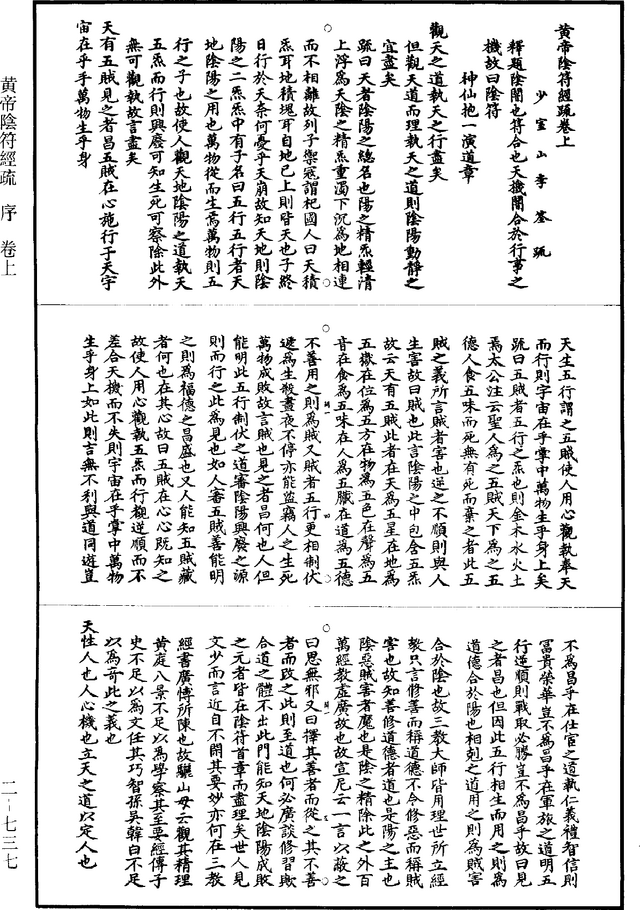 黃帝陰符經疏卷上
少室山李筌疏
釋題陰闇也符合也天機闇合於行事之
機故曰陰符
神仙抱一演道章
觀天之道執天之行盡矣
但觀天道而理執天之道則陰陽動靜之
宜盡矣
疏曰天者陰陽之總名也陽之精炁輕清
上浮為天陰之精炁重濁下沉為地相連
而不相離故列子禦寇謂杞國人曰天積
炁耳地積塊耳自地已上則皆天也子終
日行於天奈何憂乎天崩故知天地則陰
陽之二炁炁中有子名曰五行五行者天
地陰陽之用也萬物從而生焉萬物則五
行之子也故使人觀天地陰陽之道執天
五炁而行則興廢可知生死可察除此外
無可觀執故言盡矣
天有五賊見之者昌五賊在心施行于天宇
宙在乎手萬物生乎身
天生五行謂之五賊使人用心觀執奉天
而行則宇宙在乎掌中萬物生乎身上矣
疏曰五賊者五行之炁也則金木水火土
焉太公注云聖人為之五賊天下為之五
德人食五味而死無有死而棄之者此五
賊之義所言賊者害也逆之不順則與人
生害故曰賊也此言陰陽之中包含五炁
故云天有五賊此者在天為五星在地為
五嶽在位為五方在物為五色在聲為五
音在食為五味在人為五臟在道為五德
不善用之則為賊又賊者五行更相制伏
遞為生殺晝夜不停亦能盜竊人之生死
萬物成敗故言賊也見之者昌何也人但
能明此五行制伏之道審陰陽興廢之源
則而行之此為見也如人審五賊善能明
之則為福德之昌盛也又人能知五賊藏
者何也在其心故曰五賊在心心既知之
故使人用心觀執五炁而行觀逆順而不
差合天機而不失則宇宙在乎掌中萬物
生乎身上如此則吉無不利與道同遊豈
不為昌乎在仕宦之道執仁義禮智信則
富貴榮華豈不為昌乎在軍旅之道明五
行逆順則戰取必勝豈不為昌乎故曰見
之者昌也但因此五行相生而用之則為
道德合於陽也相剋之道用之則為賊害
合於陰也故三教大師皆用理世所立經
教只言修善而稱道德不令修惡而稱賊
害也故知善修道德者道也是陽之主也
陰惡賊害者魔也是陰之精除此之外百
萬經教虛廣故也故宣尼云一言以蔽之
曰思無邪又曰擇其善者而從之其不善
者而改之此則至道也何必廣談修習歟
合道之體不出此門能知天地陰陽成敗
之元者皆在陰符首章而盡理矣世人見
文少而言近自不閑其要妙亦何在三教
經書廣博所陳也故驪山母云觀其精理
黃庭八景不足以為學察其至要經傳子
史不足以為文任其巧智孫吳韓白不足
以為奇此之義也
天性人也人心機也立天之道以定人也
黃帝陰符經疏 序 卷上
二-七三七